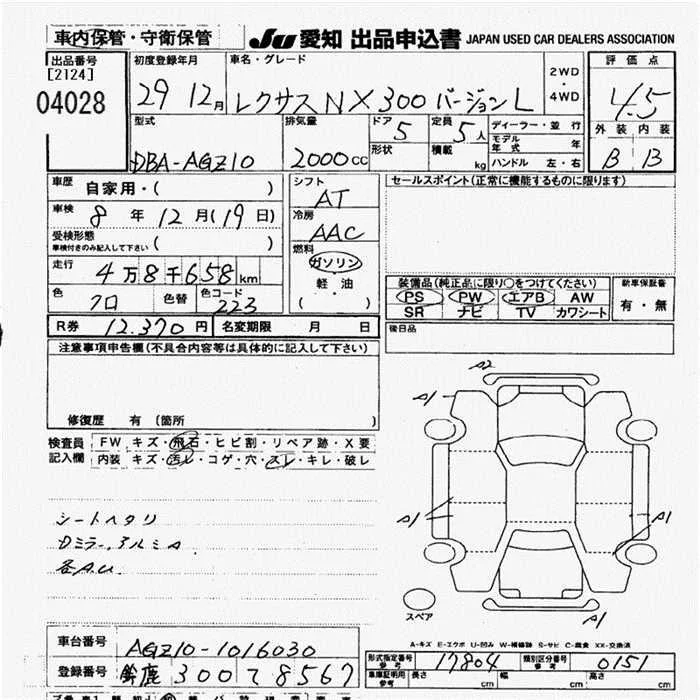 車内保管・守衛保管
JU 愛知 出品申込書 JAPAN USED CAR DEALERS ASSOCIATION
出品番号
[2124]
04028
初度登録年月
29 12月
車名・グレード
レクサスNX300 バージョンL
2WD
・
4WD
評価点
4.5
外装 内装
B B
型式
DBA-AGZ10
排気量
2000cc
ドア
5
形状
定員
5人
積載
kg
ディーラー・並行
モデル年式 年
ハンドル 左・右
車歴
自家用・( )
車検
8年12月(19日)
受検形態
車検付きのみ記入して下さい ( )
走行
4万8千658km
色
クロ
色替
色コード
223
シフト
AT
冷房
AAC
燃料
ガソリン
軽・油
( ・ )
セールスポイント(正常に機能するものに限ります)
装備品(純正品に限り○をつけてください)
PS PW エアB AW
SR ナビ TV カワシート
新車保証書
有・無
後日品
R券 12.370円 名変期限 月 日
注意事項申告欄(不具合内容等は具体的に記入して下さい)
修復歴 有 (箇所 )
検査員
記入欄
FW キズ・飛石・ヒビ割・リペア跡・X要
内装 キズ・汚レ・コゲ・穴・スレ・キレ・破レ
シートヘタリ
Dミラー、アルミA
各A.U.
A2
A1
A1
A1
A1
スペア
A-キズ E-エクボ U-凹み W-補修跡 S-サビ C-腐食 XX-交換済
車台番号
AGZ10-1016030
登録番号
鈴鹿 300 て 8567
形式指定番号
参考
17804
類別区分番号
参考
0151
車庫証明用
参考
長さ cm
幅 cm
高さ cm